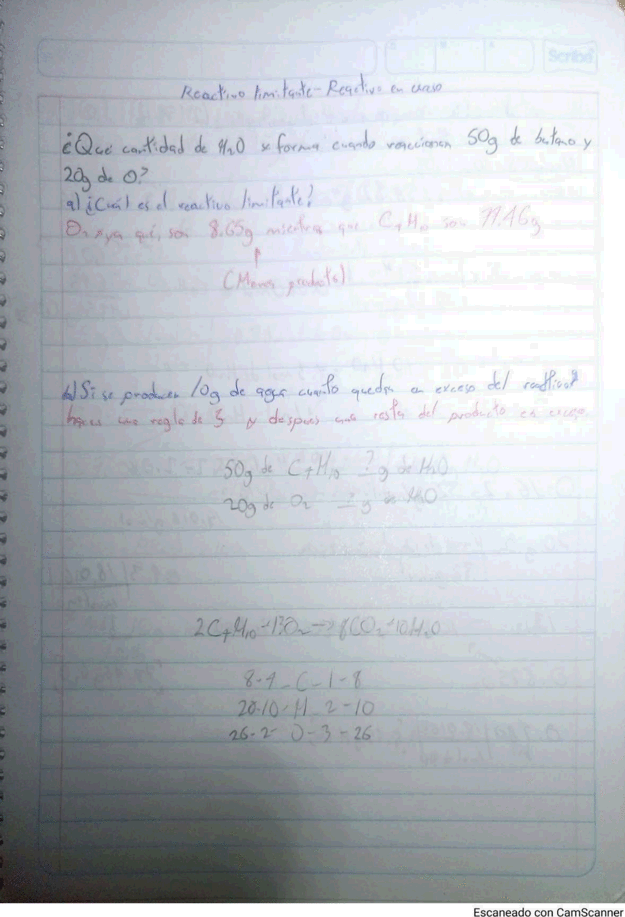 Scribe
Reactivo limitante - Reactivo en exceso
¿Que cantidad de H2O se forma cuando reaccionan 50g de butano y
20g de O?
a) ¿Cuál es el reactivo limitante?
O2 ya qe, son 8.65g mientras que C4H10 son 77.46g
(Menos producto)
b) Si se producen 10g de agua cuanto queda en exceso del
hacer una regla de 3 y despues una resta del producto en exceso
50g de C4H10 ? g de H2O
20g de O2 ? g de H2O
2C4H10+13O2→8CO2+10H2O
8-4 C-1-8
20-10-H 2-10
26-2 O-3-26
Escaneado con CamScanner